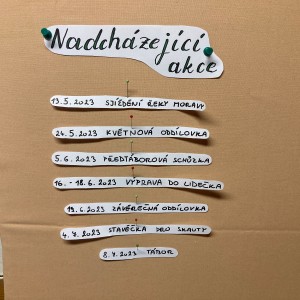 Nadcházející
akce
13.5.2023 SJÍŽDĚNÍ ŘEKY MORAVY
24.5.2023 KVĚTNOVÁ ODDÍLOVKA
5.6.2023 PŘEDTÁBOROVÁ SCHŮZKA
16.-18.6.2023 VÝPRAVA DO LIDEČKA
19.6.2023 ZÁVĚREČNÁ ODDÍLOVKA
4.7.2023 STAVĚČKA PRO SKAUTY
8.7.2023 TÁBOR